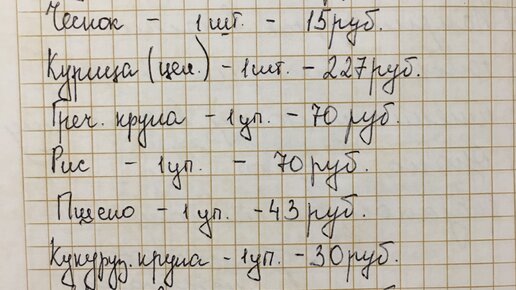 Чеснок - 1шт. - 15руб.
Курица (цел.) - 1шт. - 227руб.
Греч. крупа - 1уп. - 70 руб.
Рис - 1уп. - 70руб.
Пшено - 1 уп. - 43 руб.
Кукуруз. крупа - 1уп. - 30руб.